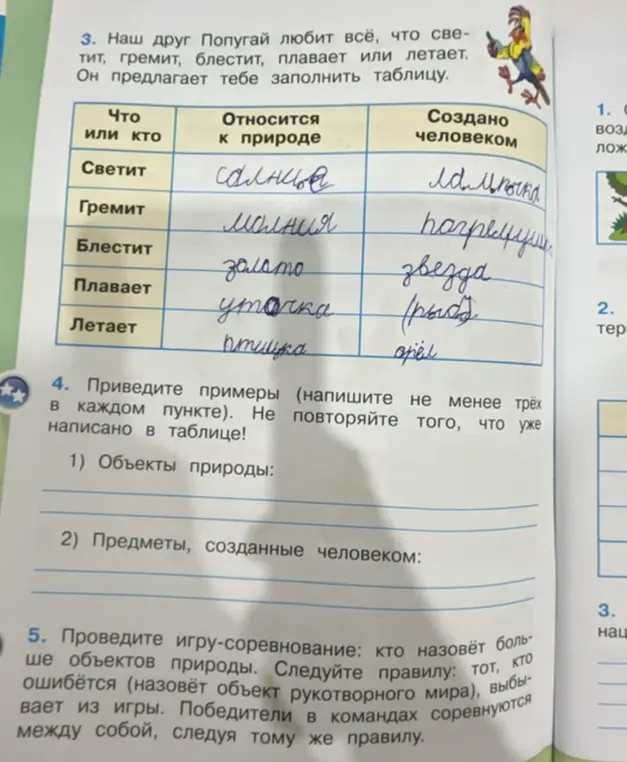 3. Наш друг Попугай любит всё, что све-
тит, гремит, блестит, плавает или летает.
Он предлагает тебе заполнить таблицу.
Что или кто Относится к природе Создано человеком
Светит солнце лампочка
Гремит молния погремушка
Блестит золото звезда
Плавает уточка (рыба)
Летает птичка орёл
4. Приведите примеры (напишите не менее трёх
в каждом пункте). Не повторяйте того, что уже
написано в таблице!
1) Объекты природы:
2) Предметы, созданные человеком:
5. Проведите игру-соревнование: кто назовёт боль-
ше объектов природы. Следуйте правилу: тот, кто
ошибётся (назовёт объект рукотворного мира), выбы-
вает из игры. Победители в командах соревнуются
между собой, следуя тому же правилу.
1.
воз
лож
2.
тер
3.
нац